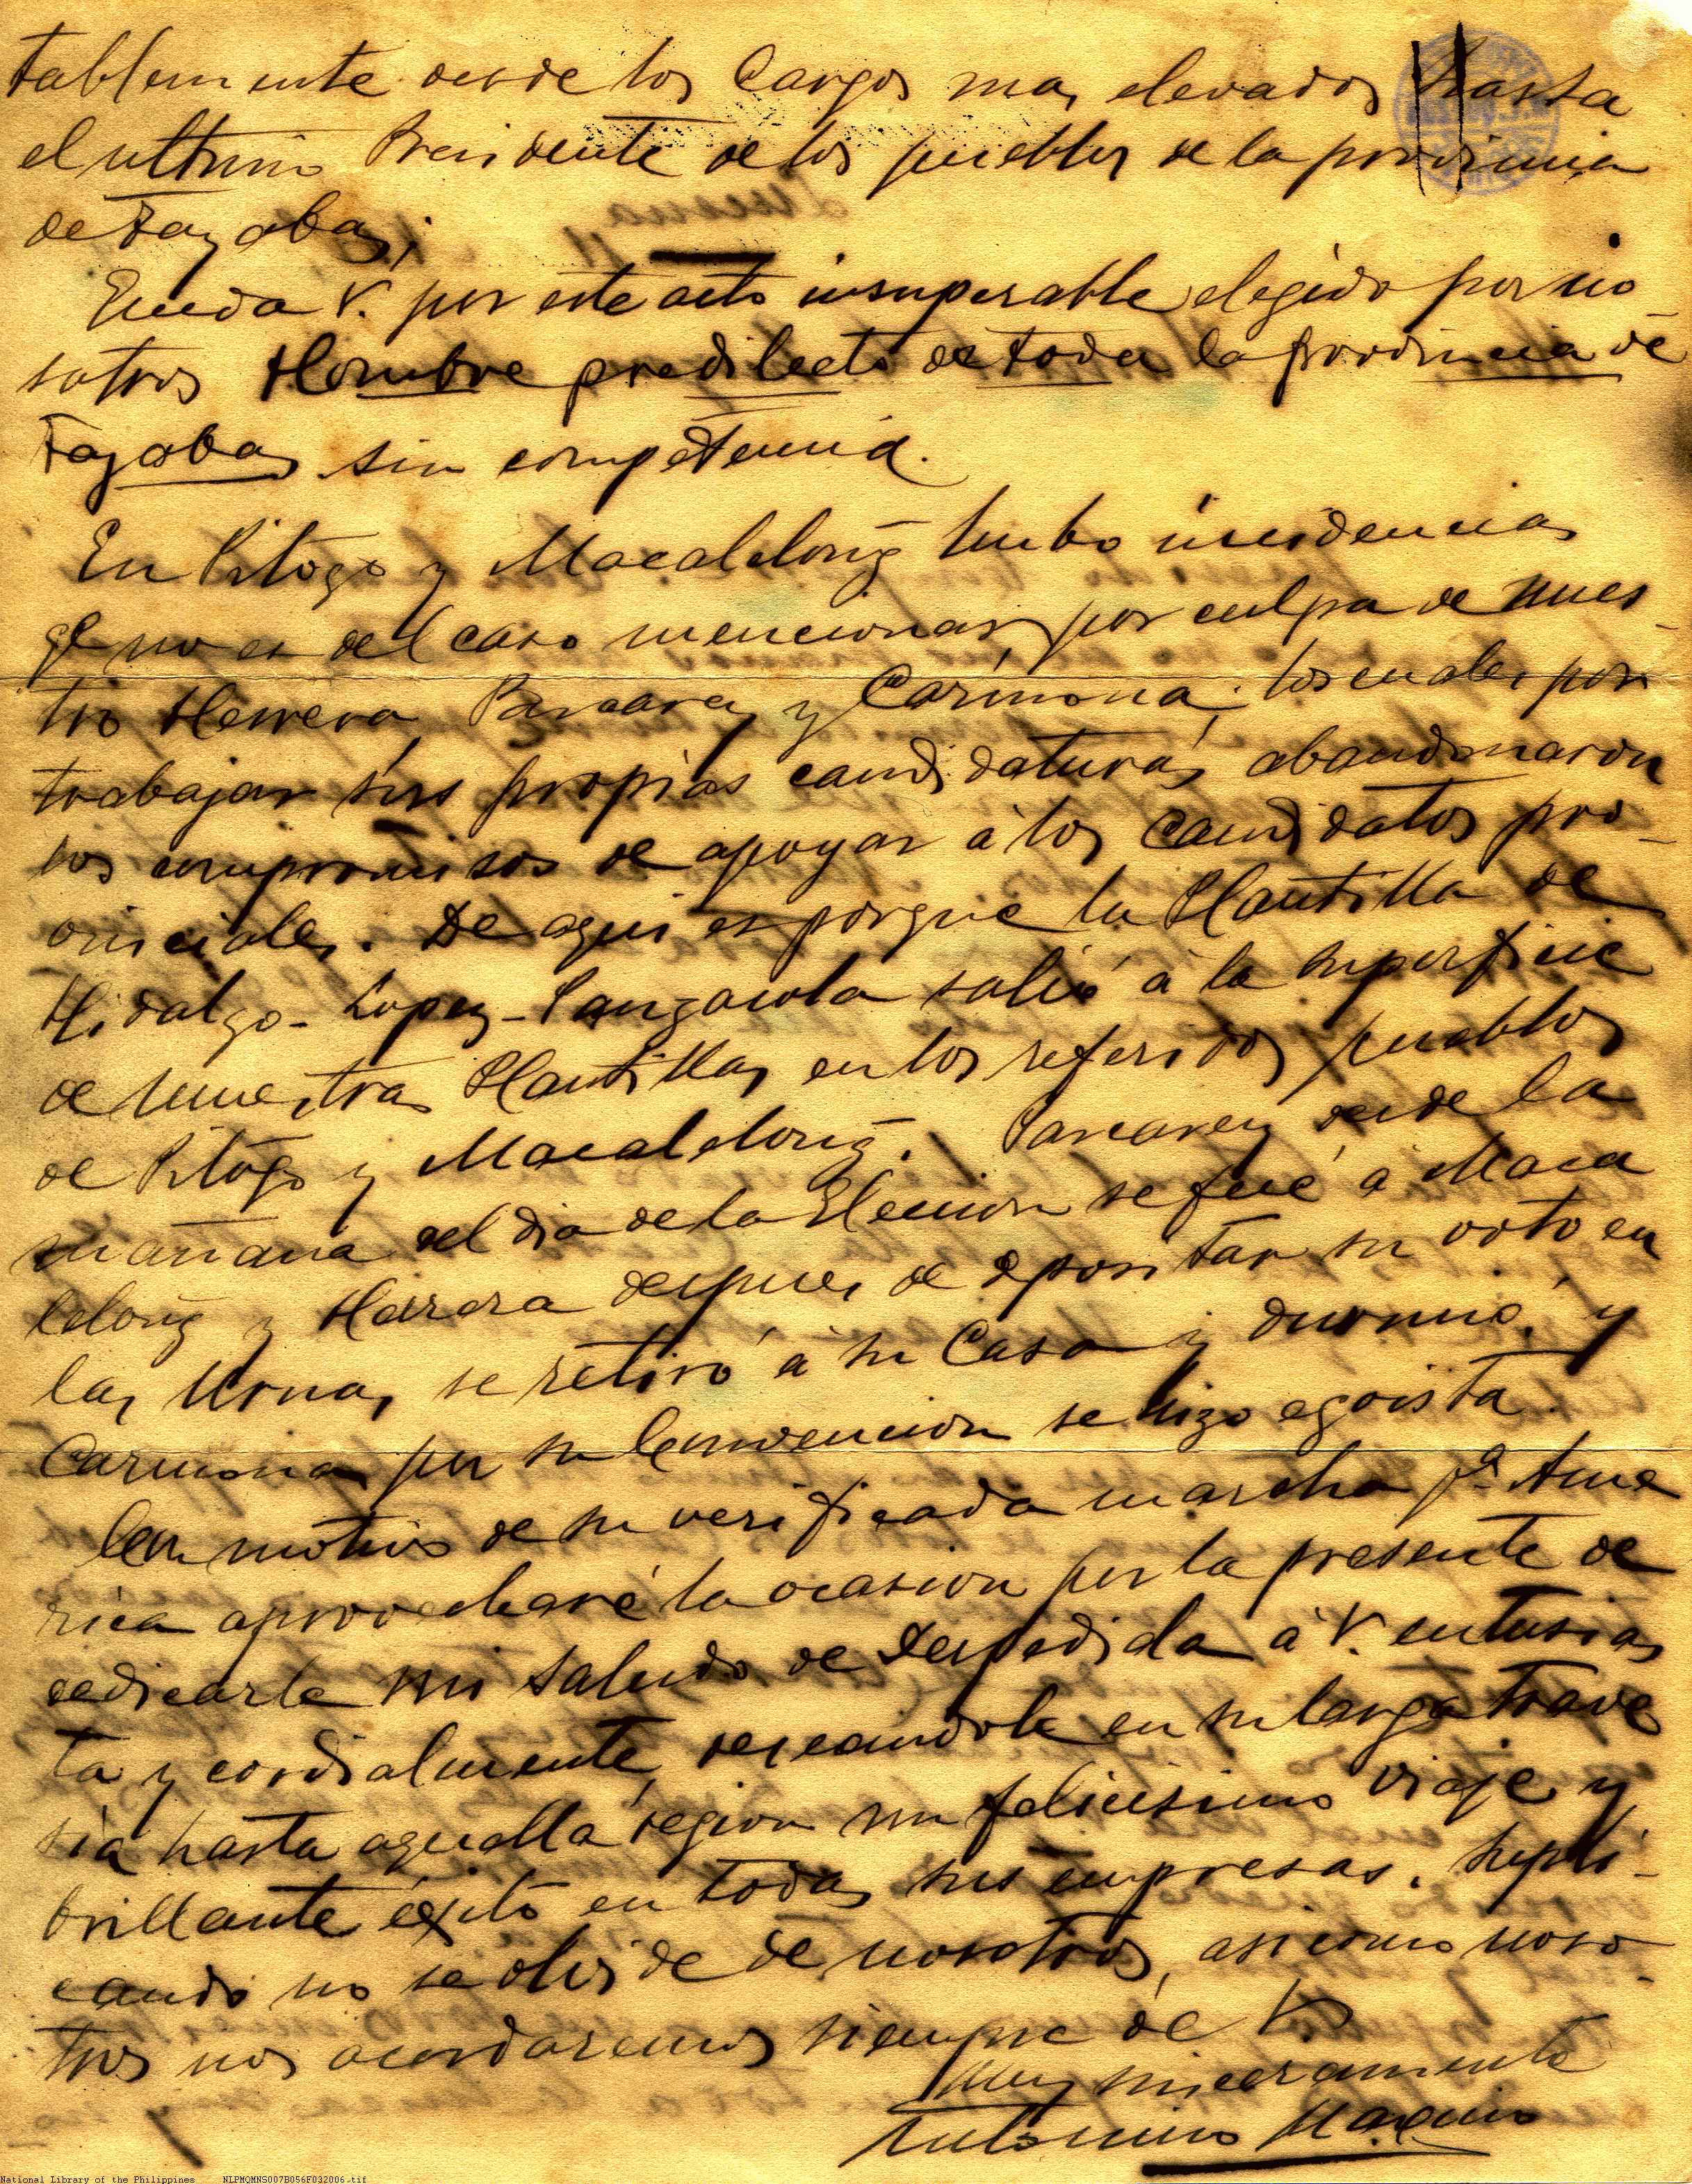 tablemente desde los Cargos mas elevados hasta
el ultimo Presidente de los pueblos de la provincia
de Tayabas;
Queda V. por este acto insuperable elegido por no
sotros Hombre predilecto de toda la provincia de
Tayabas sin competencia.
En Pitogo y Macalelong hubo incidencias
qe no es del caso mencionar, por culpa de nues-
tro Herrera, Pascarey y Carmona; los cuales por
trabajar sus propias candidaturas, abandonaron
los compromisos de apoyar á los Candidatos pro-
vinciales. De aqui es porque la Plantilla de
Hidalgo-Lopez-Sanzarola salió á la superficie
de nuestras Plantillas, en los referidos pueblos
de Pitogo y Macalelong. Pascarey desde la
mañana del dia de la Eleccion se fué á Maca
lelong y Herrera despues de depositar su voto en
las Urnas, se retiró á su Casa y durmió, y
Carmona por su Convencion se hizo egoista.
Con motivo de su verificada marcha pa. Ame
rica aprovecharé la ocasion por la presente de
dedicarle mi saludo de Despedida á V. entusias
ta y cordialmente, deseandole en su larga trave
sia hasta aquella region un felicisimo viaje y
brillante éxito en todas sus empresas. Supli-
cando no se olvide de nosotros, asi como noso-
tros nos acordaremos siempre de V.
Muy sinceramente
National Library of the Philippines NLPMQMNS007B056F032006.tif